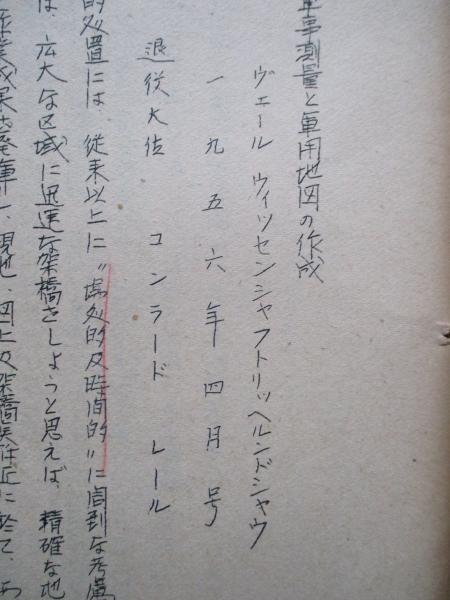 軍事測量と軍用地図の作成
ヴェール ウィッセンシャフトリッヘルンドシャウ
一九五六年四月号
退役大佐 コンラード レール
的処置には、従来以上に〝場処的及時間的〟に周到な考慮
は、広大な区域に迅速な架橋をしようと思えば、精確な地